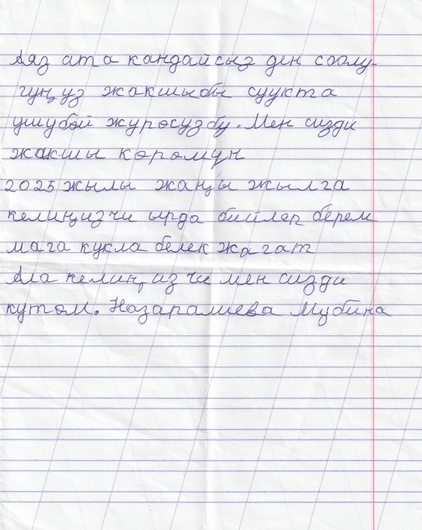 Аяз ата кандайсыз ден соолу-
гуңуз жакшыбы суукта
ушубөй журосузбу. Мен сизди
жакшы коромун
2025 жылы жаңы жылга
келиңизчи ырда бийлеп берем
мага кукла белек жагат
Ала келиң,изчи мен сизди
кутом. Назаралиева Мубина